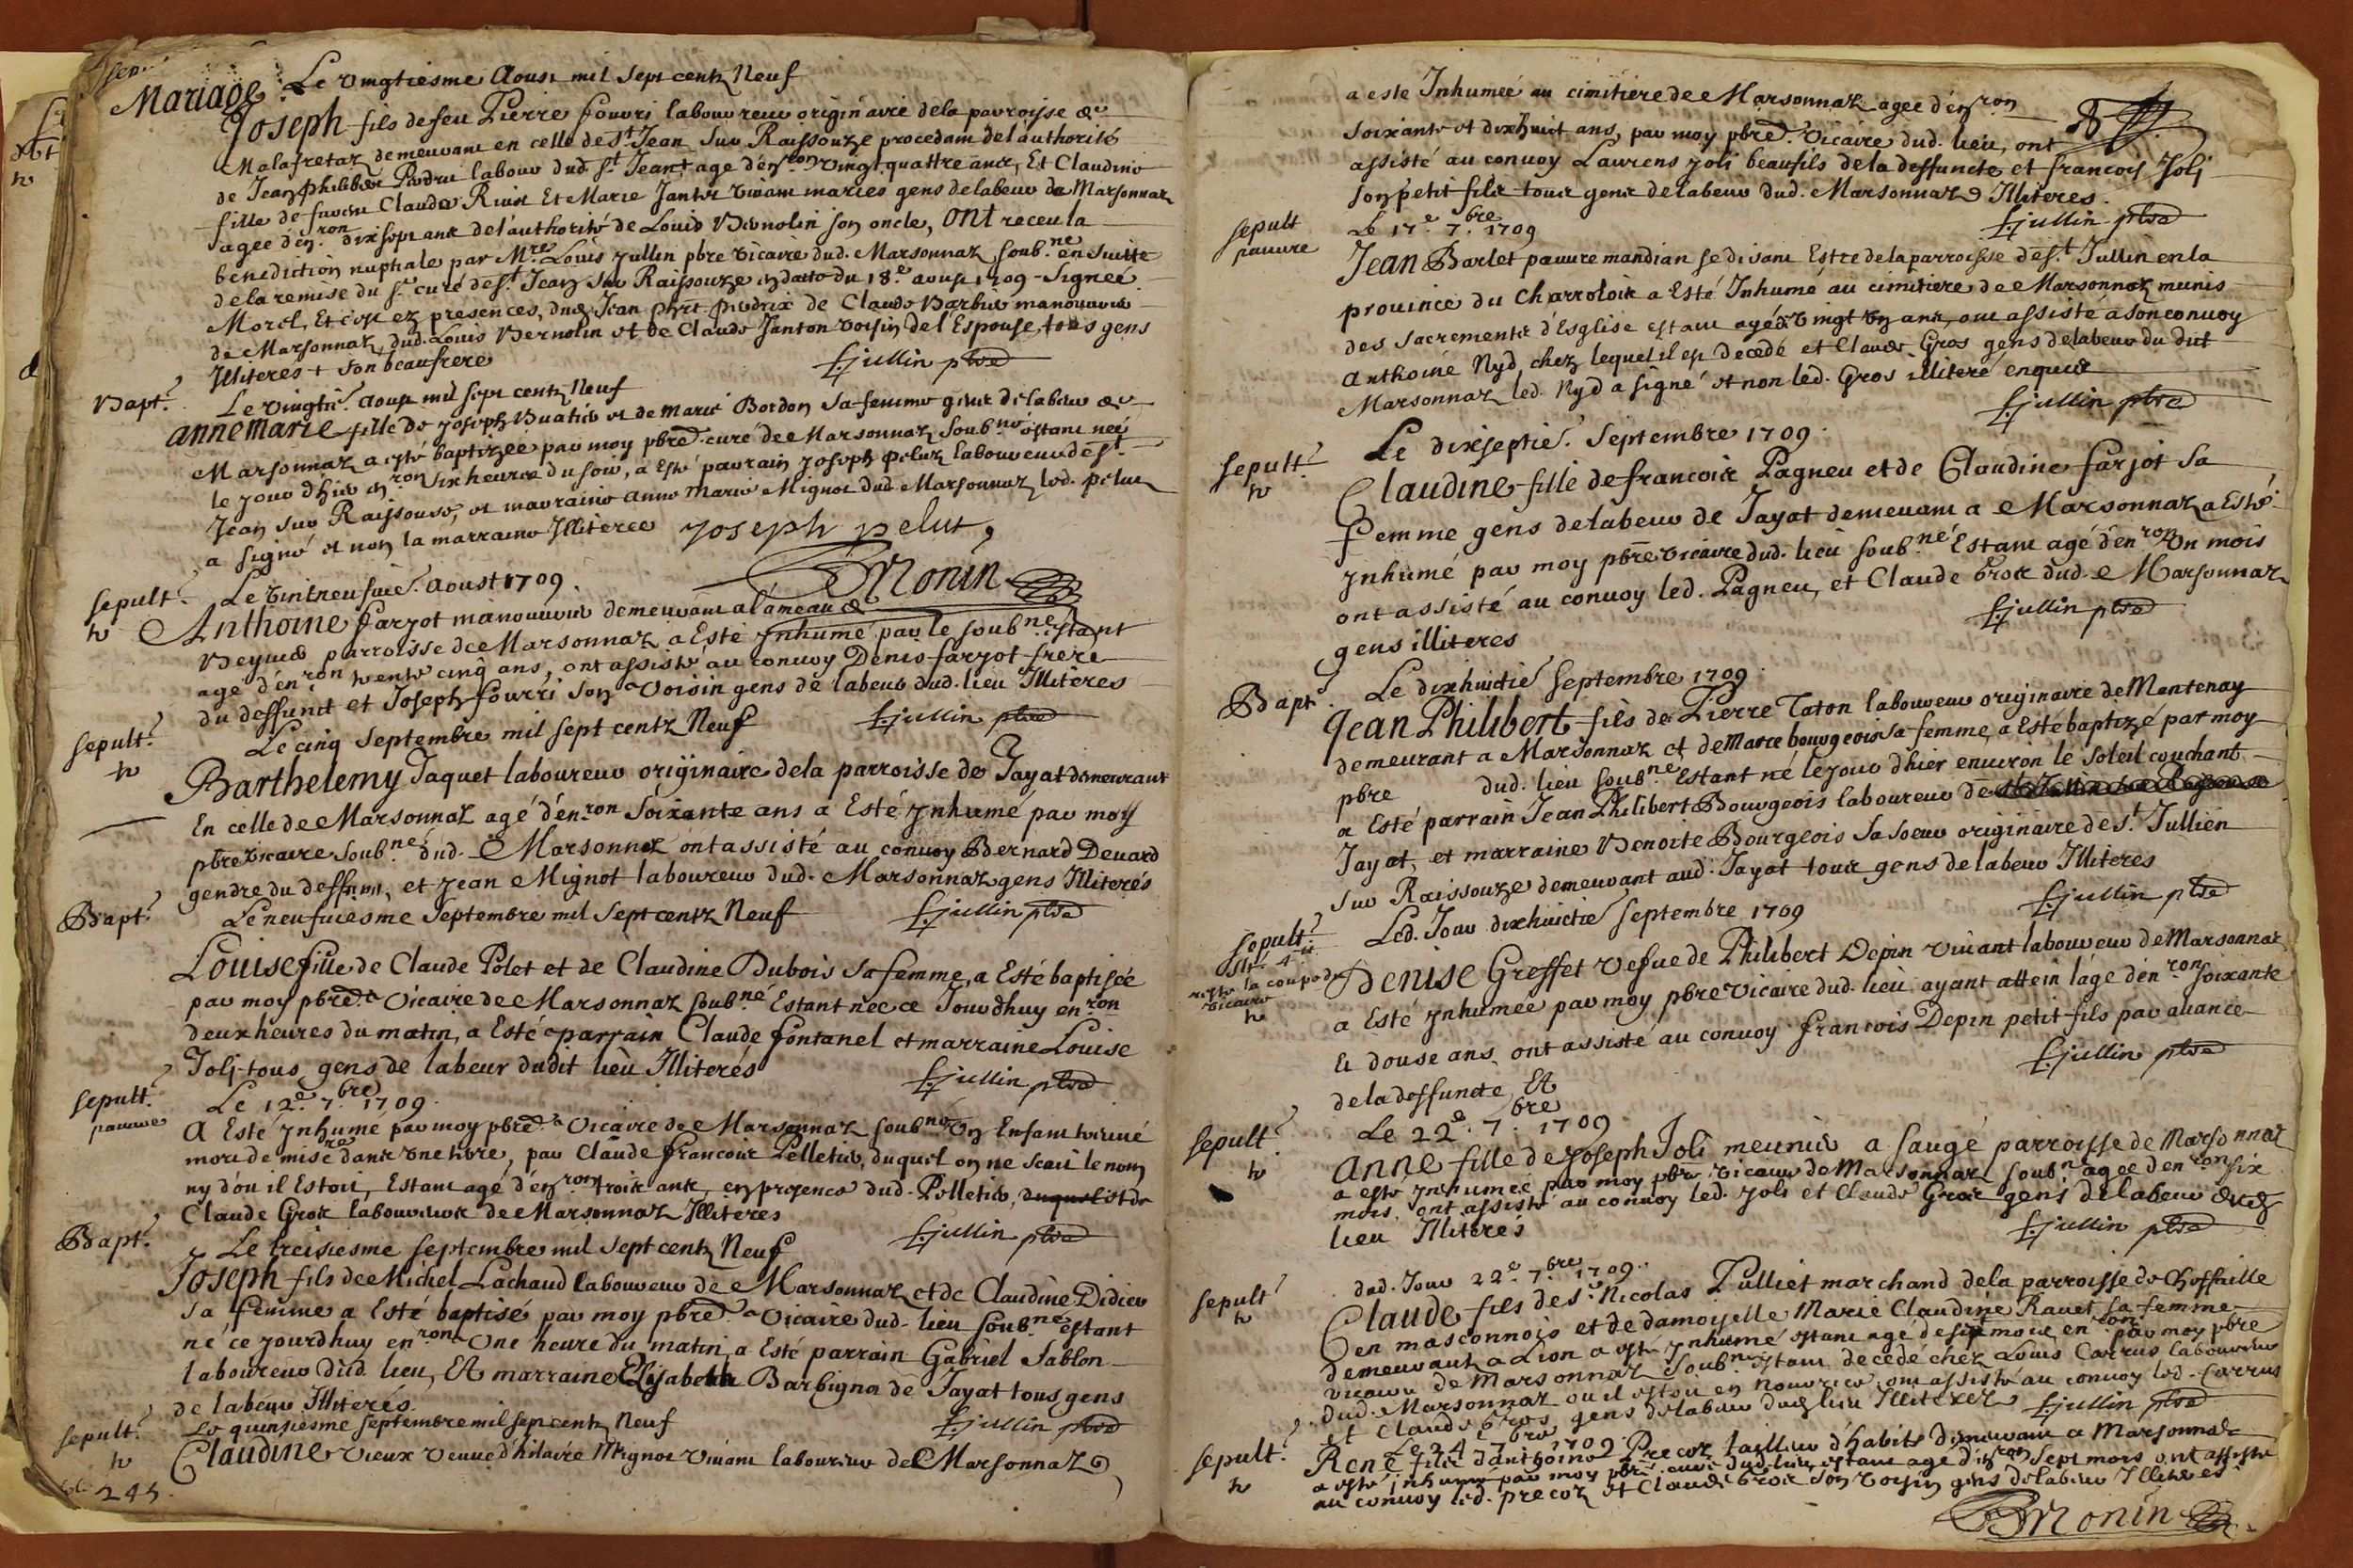 Mariage Le vingtiesme Aoust mil sept centz Neuf
Joseph fils de feu Pierre fourri laboureur originaire de la parroisse de
Malafretaz demeurant en celle de st Jean sur Raissouze procedant de l'authorité
de Jean philibert Perdrix labour dud. st Jean + agé d'en.ron vingt quattre ans, Et Claudine
fille de Claude Et Marie Janton vivant mariés gens de labeur de Marsonnaz
agee d'en.ron dixsept ans de l'authorité de Louis Vernolin son oncle, ont receu la
benediction nuptiale par Mre Louis jullin pbre vicaire dud. Marsonnaz soub.né en suitte
de la remise du sr curé de st Jean sur Raissouze en datte du 18e aoust 1709 - Signeé
Morel, Et ce ez presences, dud. Jean phrt perdrix de Claude Barbier manouvrier
de Marsonnaz, dud. Louis Vernolin et de Claude Janton voisin de l'Espouse, tous gens
Illiteres + son beaufrere
L: jullin pbre
Bapt. Le vingtie. aoust mil sept centz Neuf
anne marie fille de Joseph Buatier et de marie Bordon sa femme gens de labeur de
Marsonnaz a esté baptizeé par moy pbre curé de Marsonnaz soub.né estant neé
le jour d'hier en.ron six heures du soir, a Esté parrain Joseph pelux laboureur de st
Jean sur Raissouse, et marraine anne marie Mignot dud. Marsonnaz led. pelux
a signé et non la marraine Illiteree Joseph pelut,
Monin
sepult. Le vintneufvie. Aoust 1709.
Anthoine farjot manouvrier demeurant a l'ameau de
parroisse de Marsonnaz a Esté ynhumé par le soub.né estant
agé d'en.ron trente cinq ans, ont assisté au convoy Denis farjot frere
du deffunct et Joseph fourri son voisin gens de labeur dud. lieu Illiteres
L: jullin pbre
sepult. Le cinq Septembre mil sept centz Neuf
Barthelemy Jaquet laboureur originaire de la parroisse de Jayat demeurant
En celle de Marsonnaz agé d'en.ron Soixante ans a Esté ynhumé par moy
pbre vicaire soub.né dud. Marsonnaz ont assisté au convoy Bernard Devard
gendre du deffunct, et Jean Mignot laboureur dud. Marsonnaz gens Illiterés
L: jullin pbre
Bapt. Le neufviesme Septembre mil Sept centz Neuf
Louise fille de Claude Polet et de Claudine Dubois sa femme, a Esté baptiseé
par moy pbre vicaire de Marsonnaz soub.né Estant neé ce Jourdhuy en.ron
deux heures du matin, a Esté parrain Claude fontanel et marraine Louise
Joli tous gens de labeur dudit lieu Illiterés
L: jullin pbre
sepult. pauvre Le 12e. 7.bre 1709.
A Esté ynhumé par moy pbre vicaire de Marsonnaz soub.né un Enfant trouvé
mort de misere dans une , par Claude francois Pelletier, duquel on ne scait le nom
ny d'ou il Estoit, Estant agé d'en.ron trois ans, en presence dud. Pelletier, duquel et de
Claude Gros laboureurs de Marsonnaz Illiteres
L: jullin pbre
Bapt. Le treisiesme septembre mil sept centz Neuf
Joseph fils de Michel Lachaud laboureur de Marsonnaz et de Claudine Didier
sa femme a Esté baptisé par moy pbre vicaire dud. lieu soub.né estant
né ce jourdhuy en.ron une heure du matin, a Esté parrain Gabriel Sablon
laboureur dud. lieu, Et marraine Elisabeth Barbigna de Jayat tous gens
de labeur Illiterés.
L: jullin pbre
sepult. Le quinsiesme septembre mil sept centz Neuf
Claudine vieux veuve d'hilaire Mignot vivant laboureur de Marsonnaz
245.
a esté Inhumeé au cimitiere de Marsonnaz ageé d'en.ron
soixante et dixhuict ans, par moy pbre vicaire dud. lieu, ont
assisté au convoy Laurens joli beaufils de la deffuncte et francois Joli
son petit fils tous gens de labeur dud. Marsonnaz Illiteres.
L: jullin pbre
sepult pauvre Le 17e. 7.bre 1709
Jean Barlet pauvre mandian se disant Estre de la parroisse de st Jullin en la
province du Charrolois a Esté Inhumé au cimitiere de Marsonnaz munis
des sacrements d'Esglise estant agé de vingt un ans, ont assisté a son convoy
Anthoine Nyd chez lequel il est decedé et Claude Gros gens de labeur du dit
Marsonnaz led. Nyd a signé et non led. Gros illiteré enquis
L: jullin pbre
sepult. Le dixseptie. Septembre 1709.
Claudine fille de francois Pagneu et de Claudine farjot sa
femme gens de labeur de Jayat demeurant a Marsonnaz a Esté
ynhumé par moy pbre vicaire dud. lieu soub.né Estant agé d'en.ron un mois
ont assisté au convoy led. Pagneu, et Claude Gros dud. Marsonnaz
gens illiteres
L: jullin pbre
Bapt. Le dixhuictie septembre 1709.
Jean Philibert fils de Pierre Taton laboureur originaire de Mantenay
demeurant a Marsonnaz et de Marie bourgeois sa femme, a Esté baptizé par moy
pbre dud. lieu soub.né Estant né le jour d'hier environ le soleil couchant
a Esté parrain Jean Philibert Bourgeois laboureur de
Jayat, et marraine Benoite Bourgeois sa soeur originaire de st. Jullien
sur Raissouze demeurant aud. Jayat tous gens de labeur Illiteres
L: jullin pbre
sepult. Led. Jour dixhuictie septembre 1709
Denise Greffet vefue de Philibert Depin vivant laboureur de Marsonnaz
a Esté ynhumeé par moy pbre vicaire dud. lieu ayant attein l'age d'en.ron soixante
et douse ans, ont assisté au convoy francois Depin petit fils par avance
de la deffuncte, Et
L: jullin pbre
sepult. Le 22e. 7.bre 1709.
Anne fille de Joseph Joli meunier a saugé parroisse de Marsonnaz
a esté ynhumeé par moy pbre vicaire de Marsonnaz soub.né ageé d'en.ron six
mois, ont assisté au convoy led. Joli et Claude Gros gens de labeur dud.
lieu Illiterés
L: jullin pbre
sepult dud. Jour 22e. 7.bre 1709.
Claude fils de sr Nicolas Tulliet marchand de la parroisse de Choffaille
en masconnois et de damoyselle Marie Claudine Ravet sa femme
demeurant a Lion a esté ynhumé estant agé de sept mois en.ron par moy pbre
vicaire de Marsonnaz soub.né estant decedé chez Louis Carrus laboureur
dud. Marsonnaz ou il estoit en nourrice ont assisté au convoy led. Carrus
et Claude Gros gens de labeur dud. lieu Illiterez
L: jullin pbre
sepult. Le 24e 7.bre 1709.
René fils d'anthoine Precoz tailleur d'habits demeurant a Marsonnaz
a esté inhumé par moy pbre curé dud. lieu, estant agé d'en.ron sept mois ont assisté
au convoy led. precoz et Claude Gros son voisin gens de labeur Illiteres
Monin